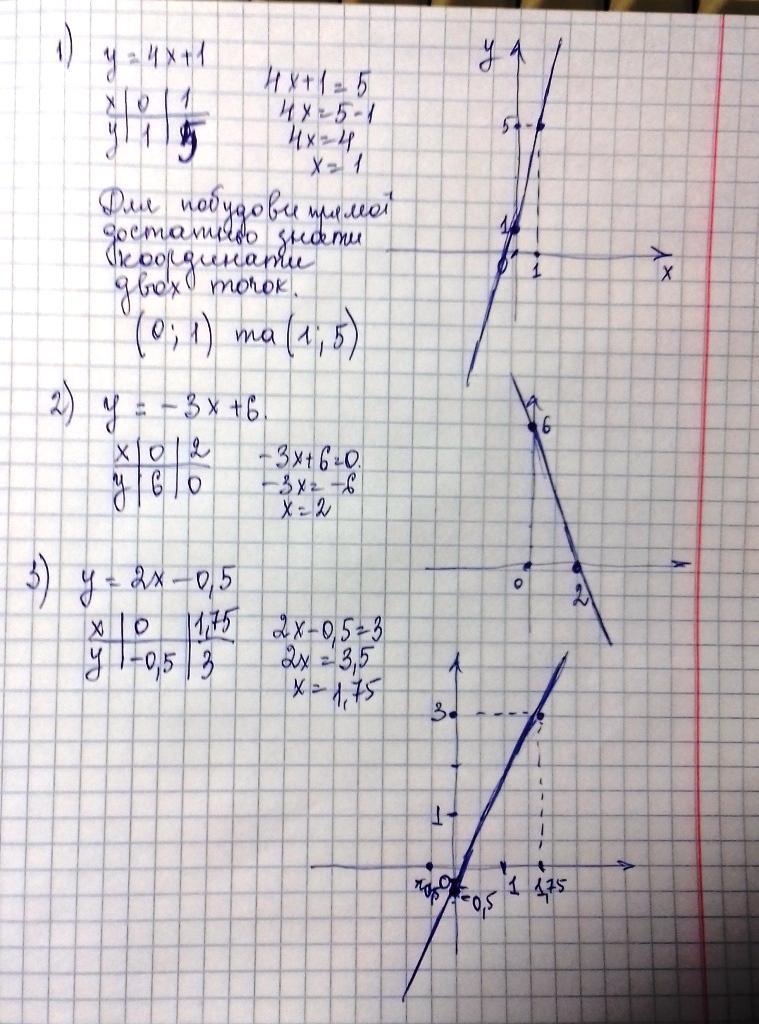 1) y = 4x+1
x 0 1
y 1 5
4x+1=5
4x=5-1
4x=4
x=1
Для побудови прямої
достатньо знати
координати
двох точок.
(0; 1) та (1; 5)
y
5
1
0 1 x
2) y = -3x+6.
x 0 2
y 6 0
-3x+6=0.
-3x=-6
x=2
6
0 2
3) y = 2x-0,5
x 0 1,75
y -0,5 3
2x-0,5=3
2x=3,5
x=1,75
3
1
0 1 1,75
-0,5